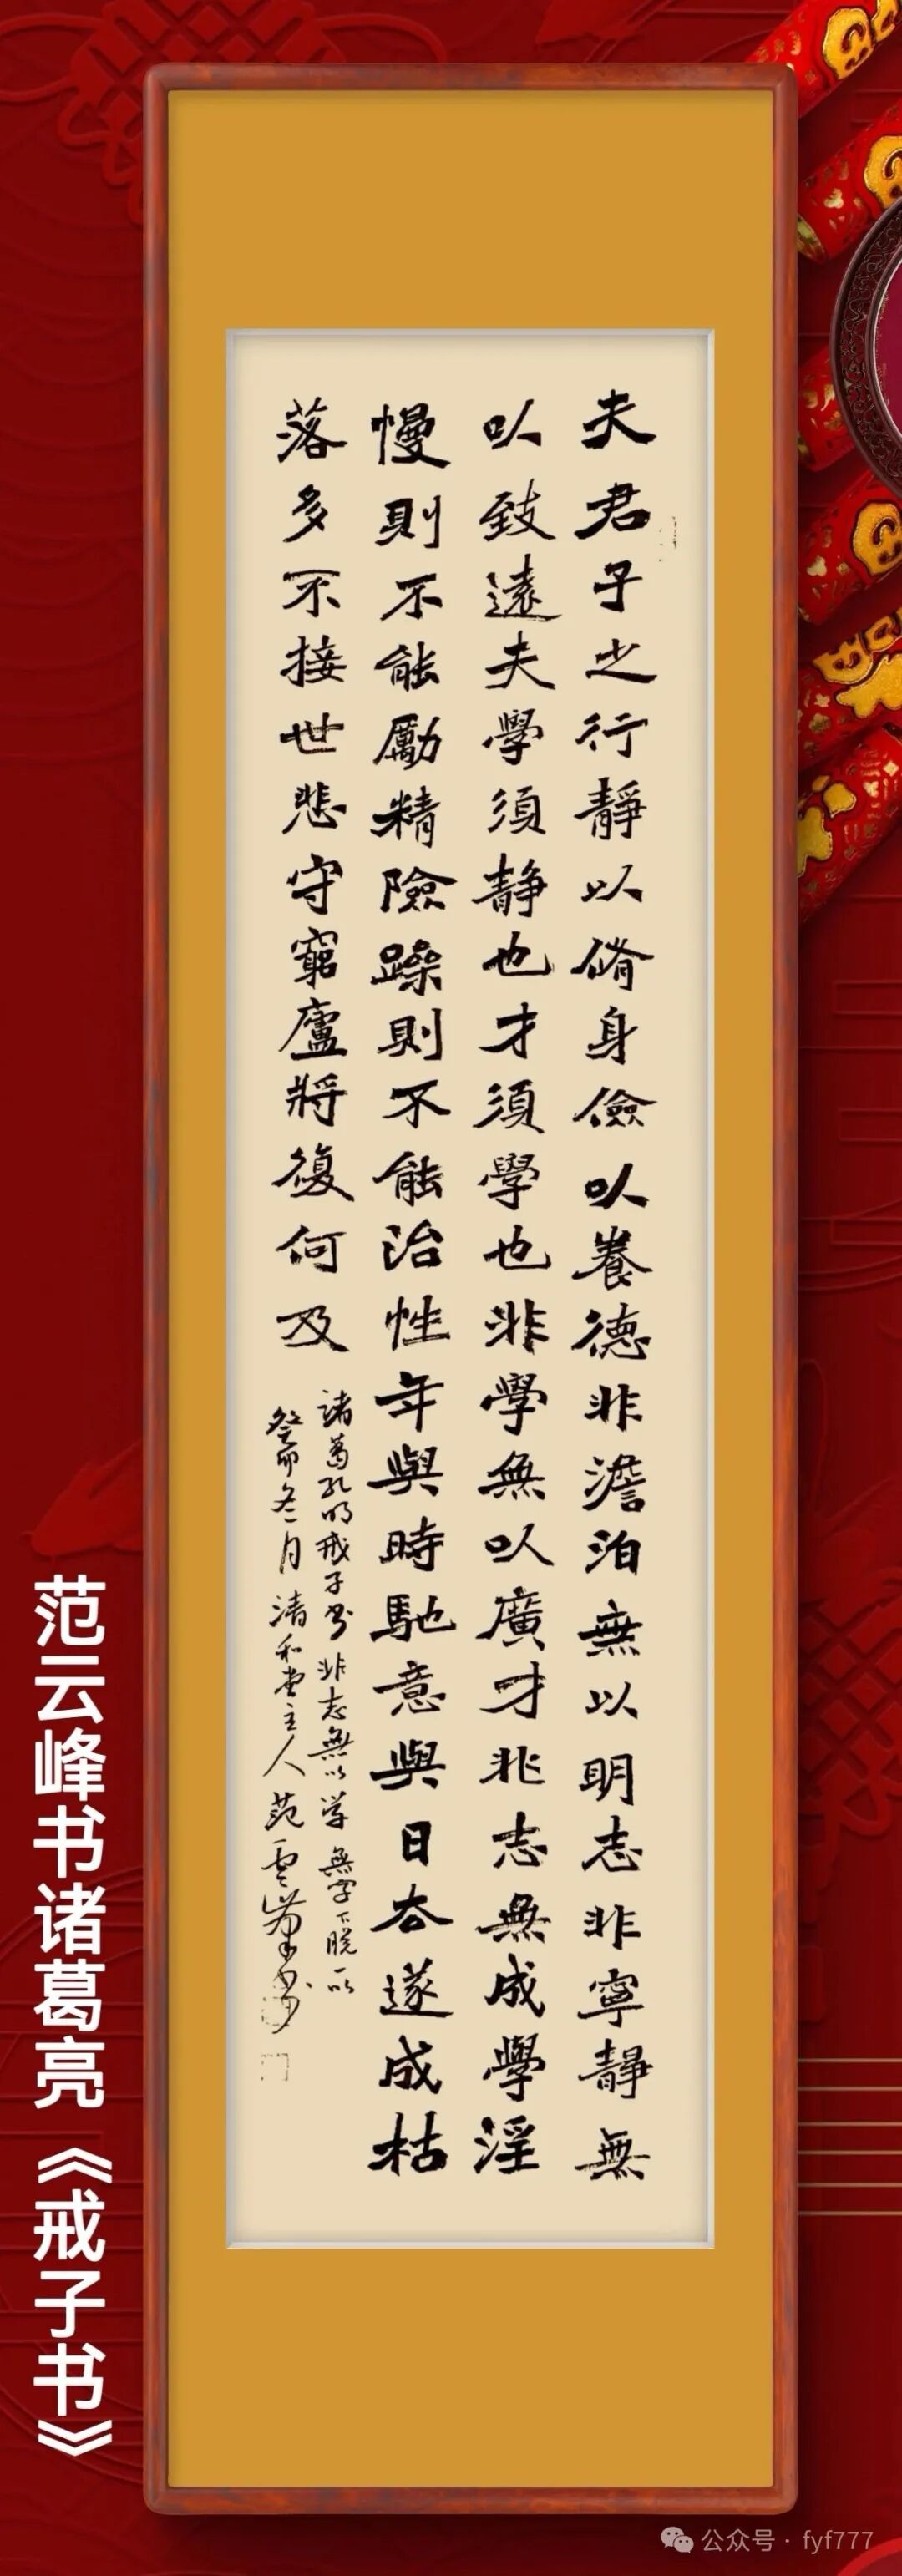 夫君子之行靜以脩身儉以養德非澹泊無以明志非寧靜無
以致遠夫學須静也才須學也非學無以廣才非志無成學淫
慢則不能勵精險躁則不能治性年與時馳意與日去遂成枯
落多不接世悲守窮廬將復何及
諸葛孔明戒子书 非志無以学 無字下脱一以
癸卯冬月清和堂主人范雲峰书
范云峰书诸葛亮《戒子书》
公众号·fyf777